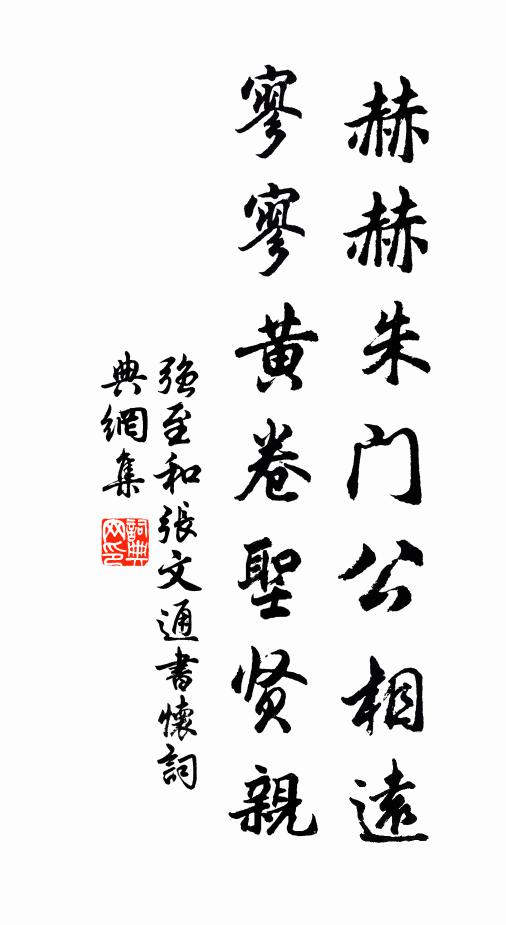 赫赫朱门公相遠
寥寥黄卷聖贤親
強至和張文通書懷詞
典網集
詞典
网印